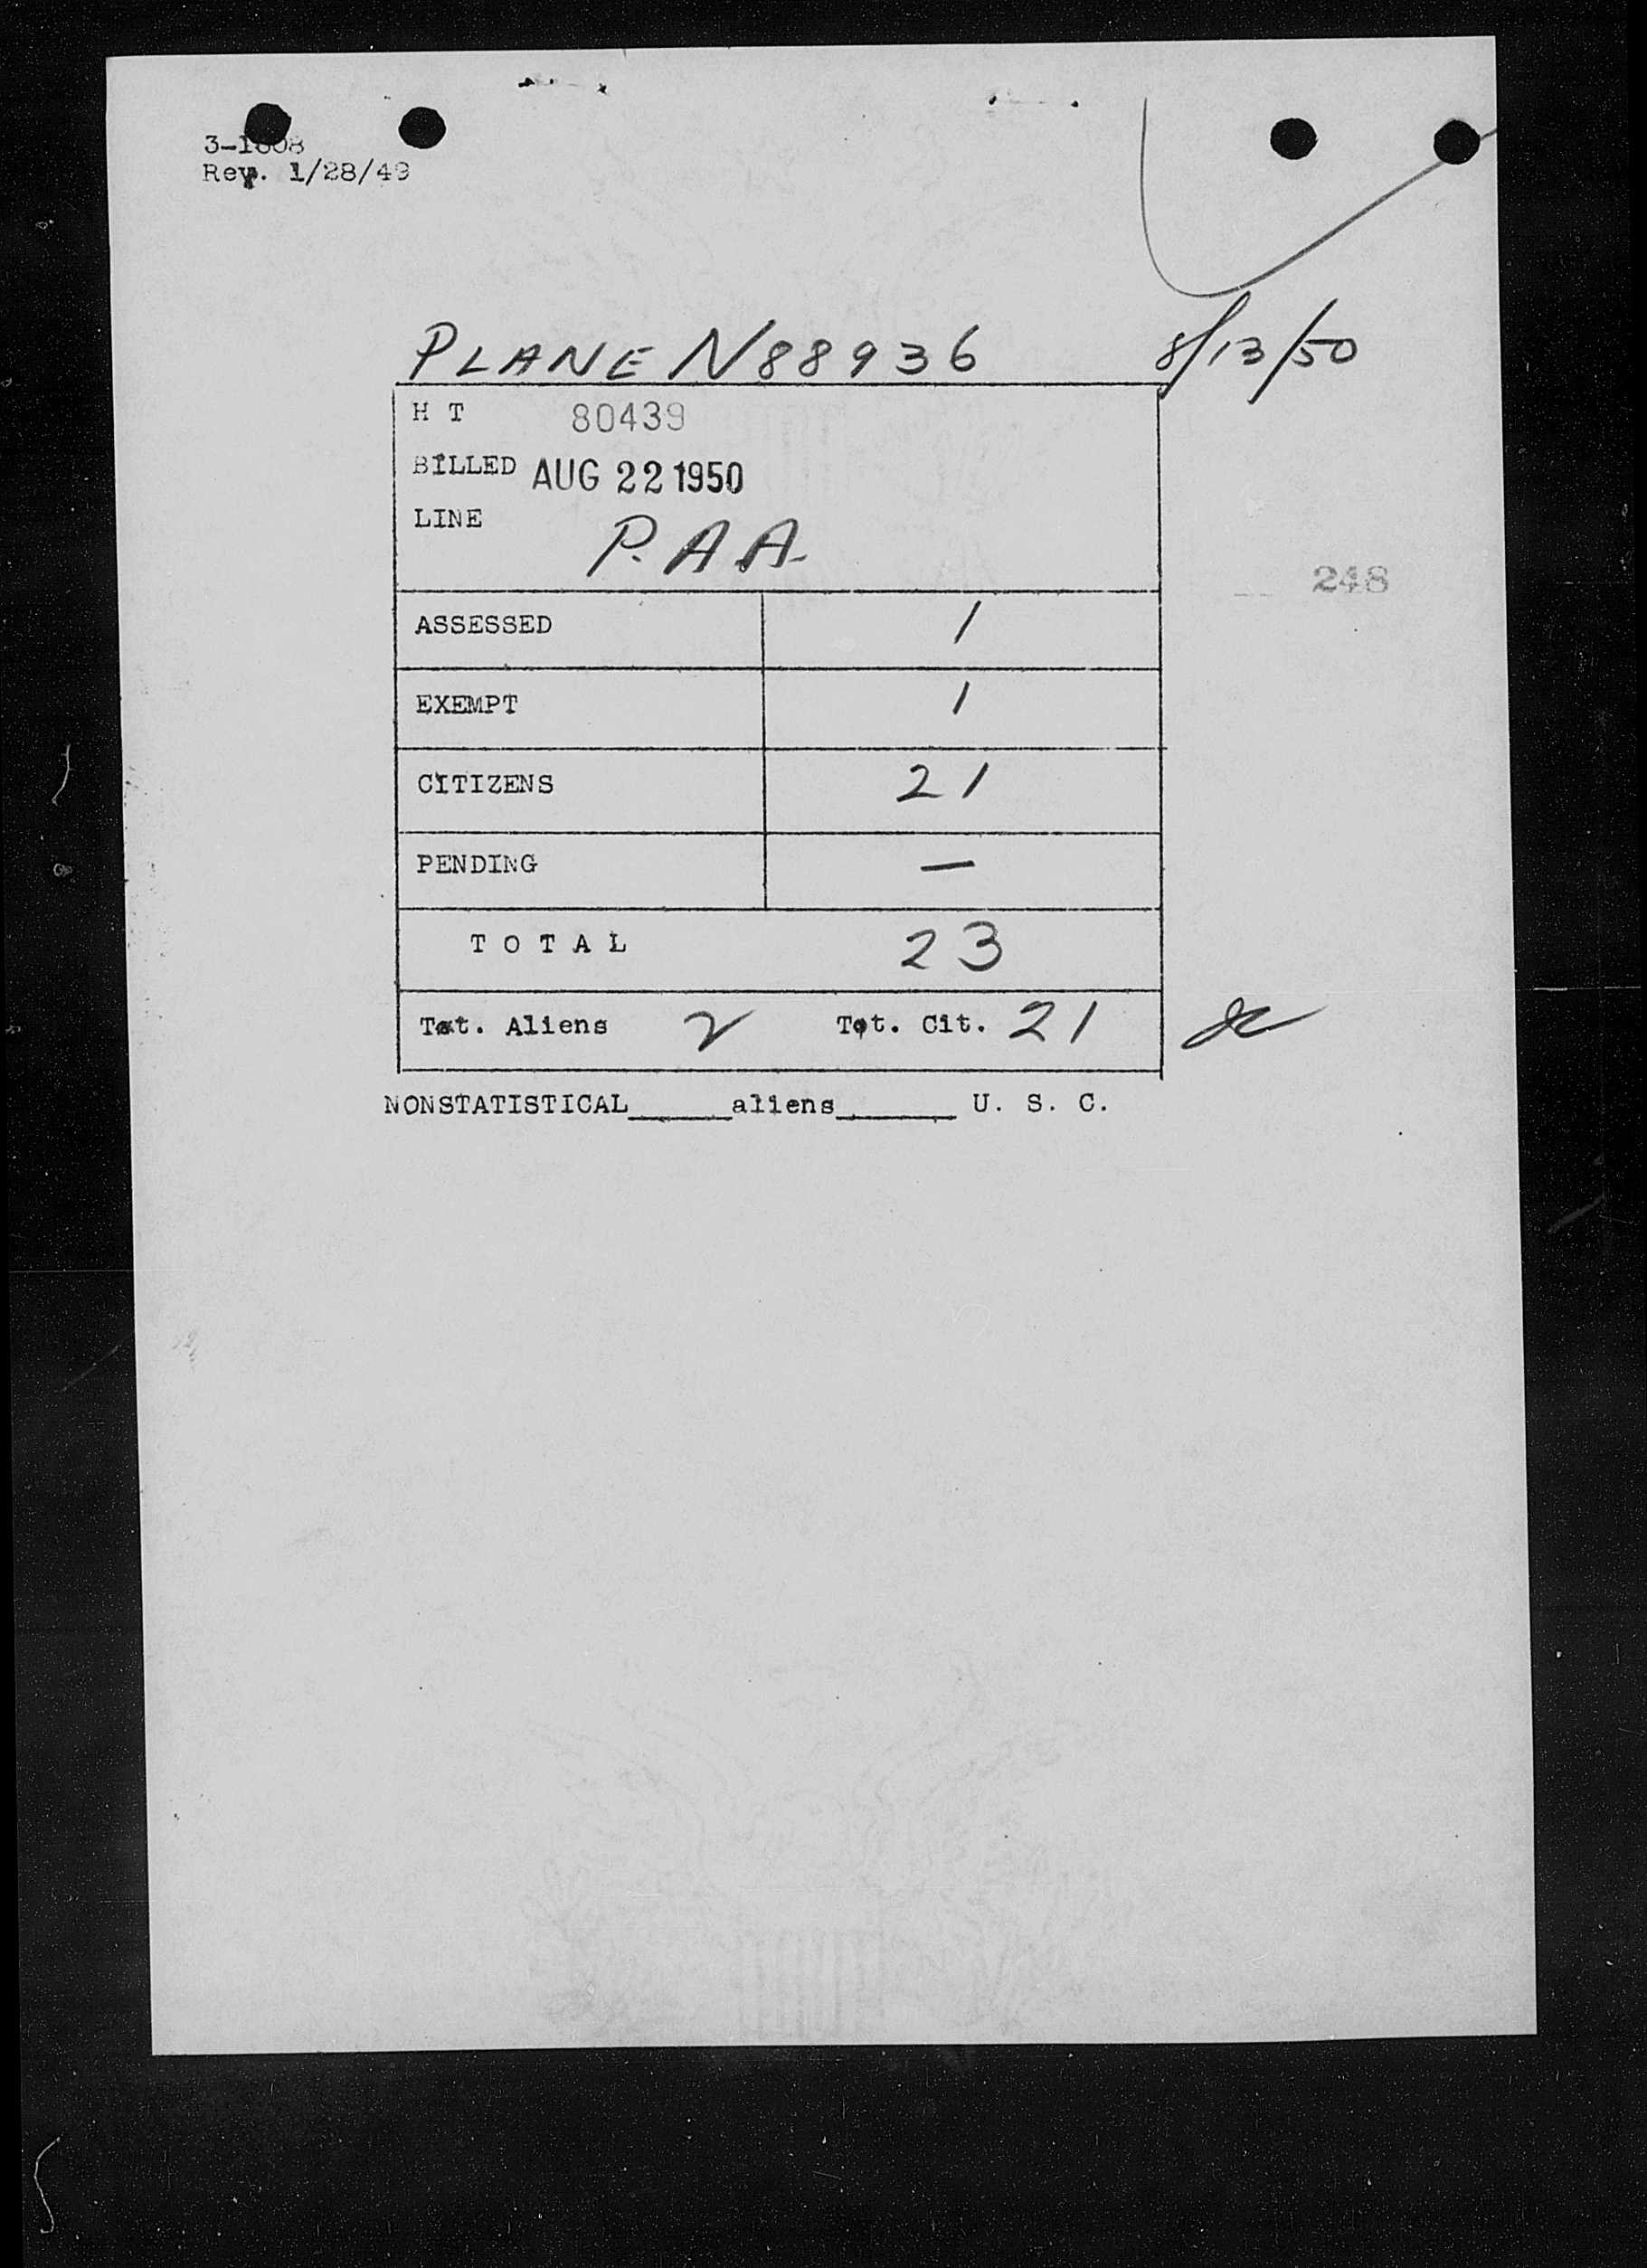 3-1808
Rev. 1/28/49
PLANE N88936 8/13/50
H T 80439
BILLED AUG 22 1950
LINE P.A.A.
248
ASSESSED 1
EXEMPT 1
CITIZENS 21
PENDING —
TOTAL 23
Tot. Aliens 2 Tot. Cit. 21
NONSTATISTICAL______aliens_______ U. S. C.